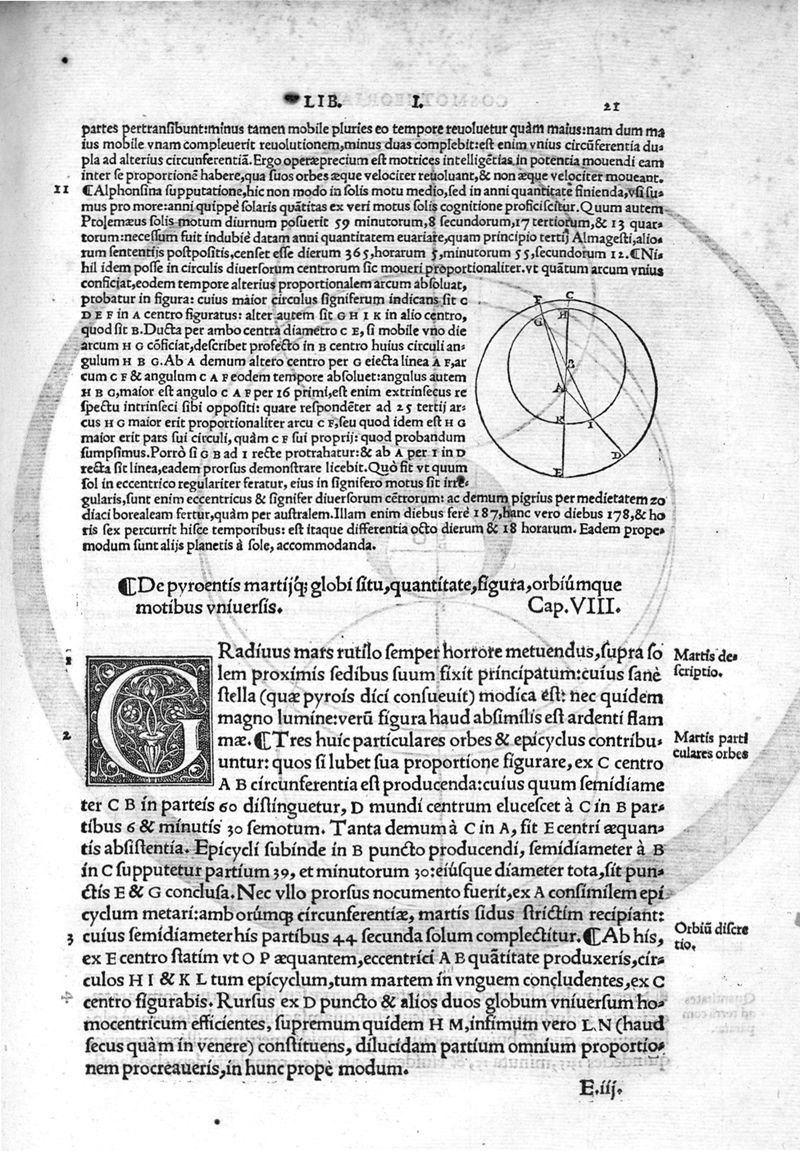 LIB. I. 21
partes pertransibunt:minus tamen mobile pluries eo tempore reuoluetur quàm maius:nam dum ma
ius mobile vnam compleuerit reuolutionem,minus duas complebit:est enim vnius circūferentia du-
pla ad alterius circunferentiā. Ergo operæprecium est motrices intelligētias in potentia mouendi eam
inter se proportionē habere,qua suos orbes æque velociter reuoluant,& non æque velociter moueant.
11 ¶Alphonsina supputatione,hic non modo in solis motu medio,sed in anni quantitate finienda,vsi su-
mus pro more:anni quippe solaris quātitas ex veri motus solis cognitione proficiscitur. Quum autem
Ptolemæus solis motum diurnum posuerit 59 minutorum,8 secundorum,17 tertiorum,& 13 quar-
torum:necessum fuit indubiè datam anni quantitatem euariare,quam principio tertij Almagesti,alio-
rum sententijs postpositis,censet esse dierum 365,horarum 5,minutorum 55,secundorum 12.¶Ni-
hil idem posse in circulis diuersorum centrorum sic moueri proportionaliter.vt quātum arcum vnius
conficiat,eodem tempore alterius proportionalem arcum absoluat,
probatur in figura: cuius maior circulus signiferum indicans sit C
D E F in A centro figuratus: alter autem sit G H I K in alio centro,
quod sit B. Ducta per ambo centra diametro C E, si mobile vno die
arcum H G cōficiat,describet profecto in B centro huius circuli an-
gulum H B G. Ab A demum altero centro per G eiecta linea A F,ar
cum C F & angulum C A F eodem tempore absoluet:angulus autem
H B G,maior est angulo C A F per 16 primi,est enim extrinsecus re
spectu intrinseci sibi oppositi: quare respondēter ad 25 tertij ar-
cus H G maior erit proportionaliter arcu C F,seu quod idem est H G
maior erit pars sui circuli, quàm C F sui proprij: quod probandum
sumpsimus. Porrò si G B ad I recte protrahatur: & ab A per I in D
recta sit linea,eadem prorsus demonstrare licebit. Quò fit vt quum
sol in eccentrico regulariter feratur, eius in signifero motus sit irre-
gularis,sunt enim eccentricus & signifer diuersorum cētrorum: ac demum pigrius per medietatem zo
diaci borealeam fertur,quàm per australem. Illam enim diebus ferè 187,hanc vero diebus 178,& ho
ris sex percurrit hisce temporibus: est itaque differentia octo dierum & 18 horarum. Eadem prope-
modum sunt alijs planetis à sole, accommodanda.
F C
G H
B
A
K I
D
E
¶De pyroentis martijq; globi situ,quantitate,figura,orbiúmque
motibus vniuersis. Cap.VIII.
1 GRadiuus mars rutilo semper horrore metuendus,supra so
lem proximis sedibus suum fixit principatum:cuius sanè
stella (quæ pyrois dici consueuit) modica est: nec quidem
magno lumine:verū figura haud absimilis est ardenti flam
2 mæ. ¶Tres huic particulares orbes & epicyclus contribu-
untur: quos si lubet sua proportione figurare, ex C centro
A B circunferentia est producenda:cuius quum semidiame
ter C B in parteis 60 distinguetur, D mundi centrum elucescet à C in B par-
tibus 6 & minutis 30 semotum. Tanta demum à C in A, sit E centri æquan-
tis absistentia. Epicycli subinde in B puncto producendi, semidiameter à B
in C supputetur partium 39, et minutorum 30:eiúsque diameter tota,sit pun-
ctis E & G conclusa. Nec vllo prorsus nocumento fuerit,ex A consimilem epi
cyclum metari:amborúmq; circunferentiæ, martis sidus strictim recipiant:
3 cuius semidiameter his partibus 44 secunda solum complectitur. ¶Ab his,
ex E centro statim vt O P æquantem, eccentrici A B quātitate produxeris,cir-
culos H I & K L tum epicyclum,tum martem in vnguem concludentes,ex C
centro figurabis. Rursus ex D puncto & alios duos globum vniuersum ho-
mocentricum efficientes, supremum quidem H M,infimum vero L N (haud
secus quàm in venere) constituens, dilucidam partium omnium proportio-
nem procreaueris,in hunc propè modum.
Martis de-
scriptio.
Martis parti
culares orbes
Orbiū discre
tio.
E.iij.